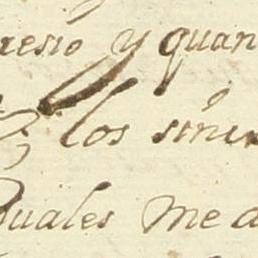 resio y quan
los sinu
quales me a